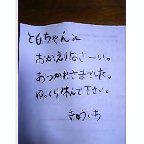 ともちゃんえ
おかえりなさーい。
おつかれさまでした。
ゆっくり休んで下さい。
きょういち